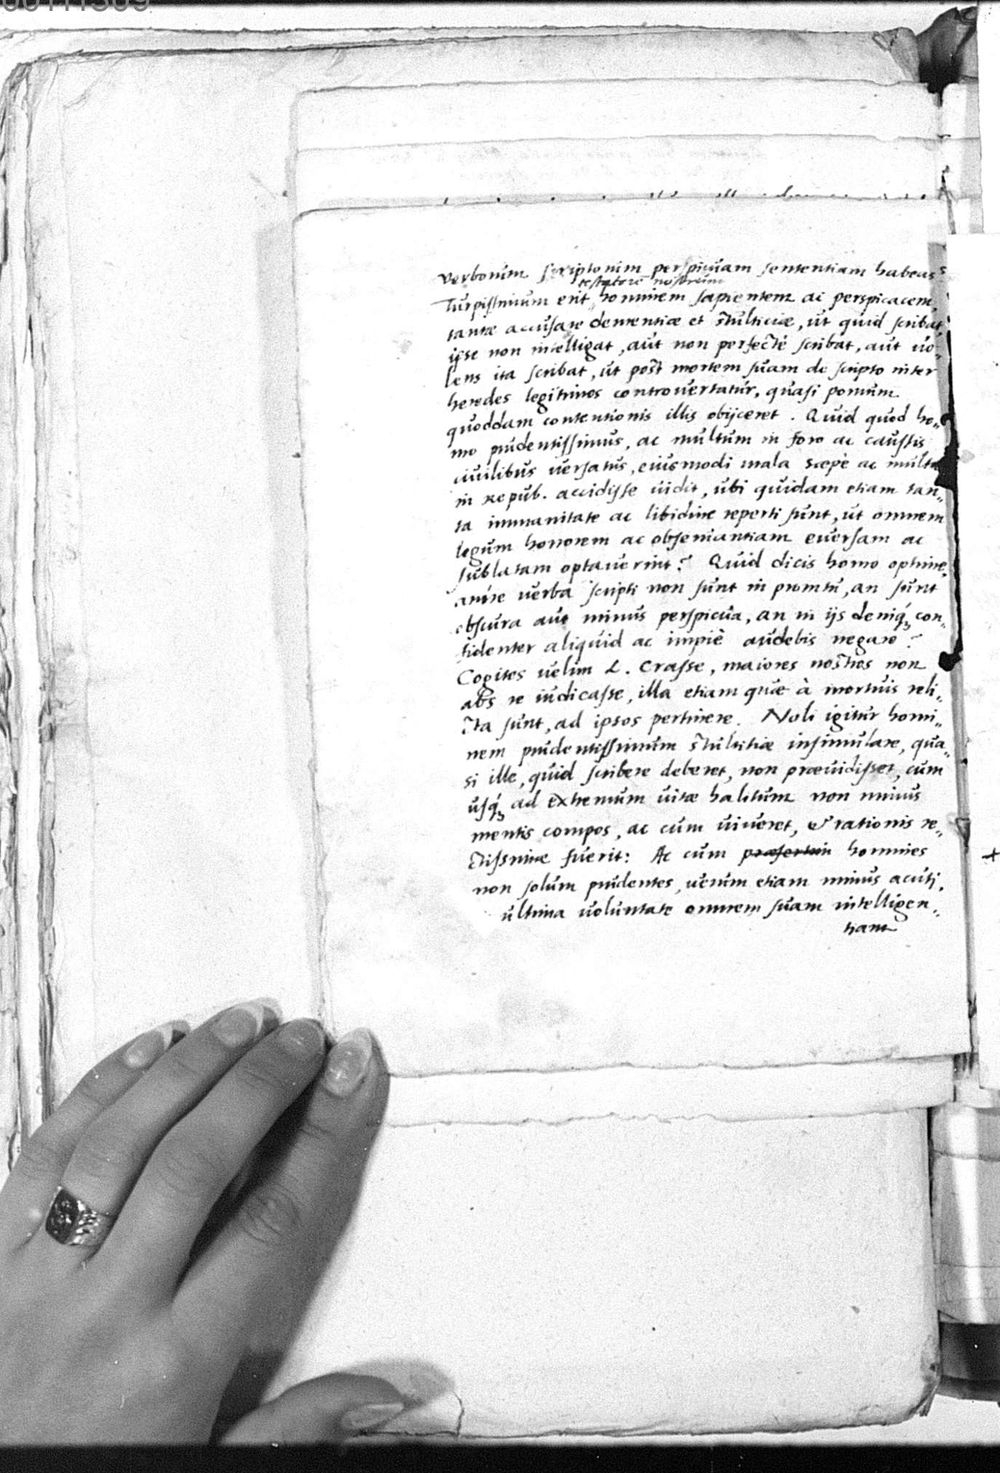 verborum scriptorum perspicuam sententiam habeas?
testatore nostrum
Turpissimum erit, hominem sapientem ac perspicacem,
tantæ accusare dementiæ et stultitiæ, ut quid scribat,
ipse non intelligat, aut non perfectè scribat, aut uo-
lens ita scribat, ut post mortem suam de scripto inter
heredes legitimos controuertatur, quasi pomum
quoddam contentionis illis obijceret. Quid quod ho-
mo prudentissimus, ac multum in foro ac caussis
ciuilibus uersatus, eiusmodi mala sæpè ac multa
in Repub. accidisse uidit, ubi quidam etiam tan-
ta immanitate ac libidine reperti sunt, ut omnem
legum honorem ac obseruantiam euersam ac
sublatam optauerint? Quid dicis homo optime,
an're uerba scripti non sunt in promtu, an sunt
obscura aut minus perspicua, an in ijs deniq́; con-
fidenter aliquid ac impiè audebis negare?
Cogites uelim L. Crasse, maiores nostros non
abs re iudicasse, illa etiam quæ à mortuis reli-
cta sunt, ad ipsos pertinere. Noli igitur homi-
nem prudentissimum stultitiæ insimulare, qua-
si ille, quid scribere deberet, non præuidisset, cum
usq́; ad extremum uitæ halitum non minus
mentis compos, ac cum uiueret, & rationis re-
ctissimæ fuerit: Ac cum præsertim homines
non solum prudentes, uerum etiam minus acuti,
ultima uoluntate omnem suam intelligen-
tiam